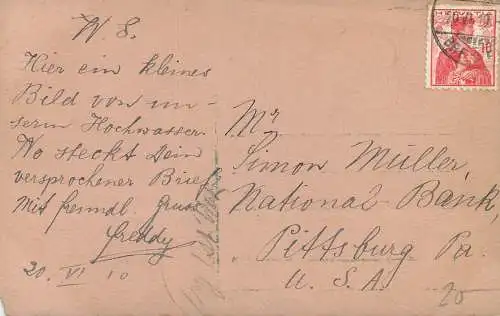 W. S.
Hier ein kleines
Bild von un-
serm Hochwasser.
Wo steckt Dein
versprochener Brief
Mit freundl. Gruss
Freddy
20. VI 10
Mr
Simon Müller,
National-Bank
Pittsburg Pa.
U. S. A.
20